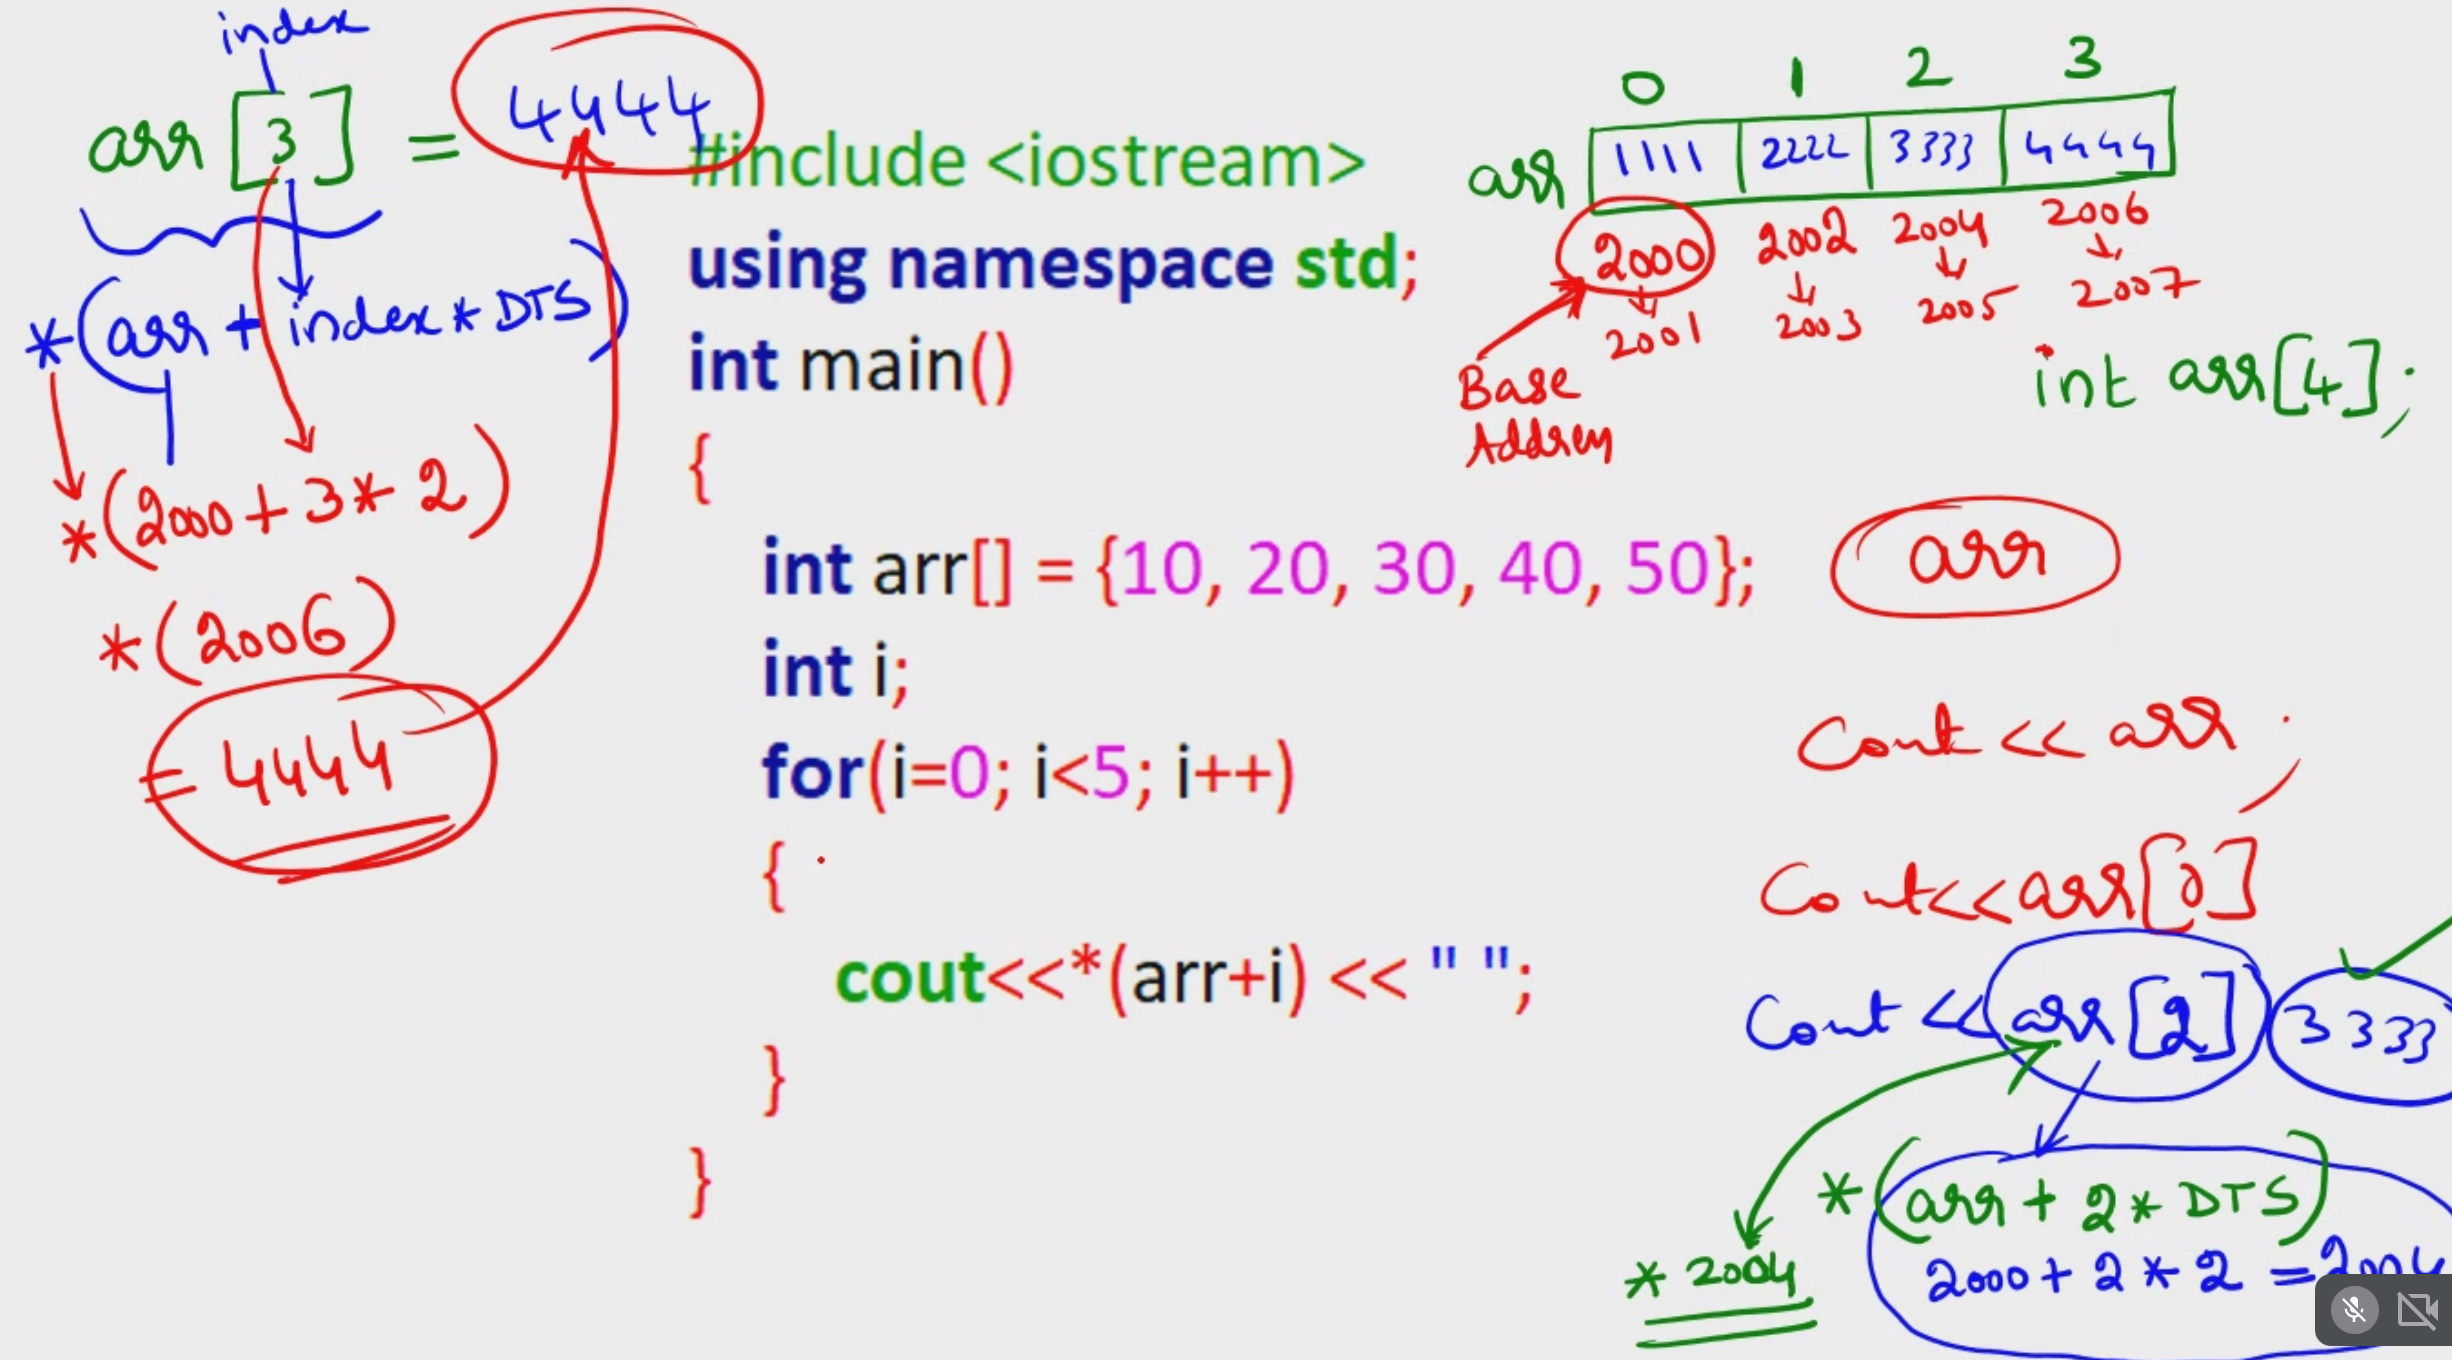 index
arr [3] = 4444
*(arr + index * DTS)
*(2000 + 3 * 2)
*(2006)
= 4444
#include <iostream>
using namespace std;
int main()
{
int arr[] = {10, 20, 30, 40, 50};
int i;
for(i=0; i<5; i++)
{
cout<<*(arr+i) << " ";
}
}
0 1 2 3
arr 1111 2222 3333 4444
2000 2002 2004 2006
2001 2003 2005 2007
Base
Address
int arr[4];
arr
Cout << arr ;
Cout<<arr[0]
Cout << arr [2] 3333
*(arr + 2 * DTS)
* 2004
2000 + 2 * 2 = 2004